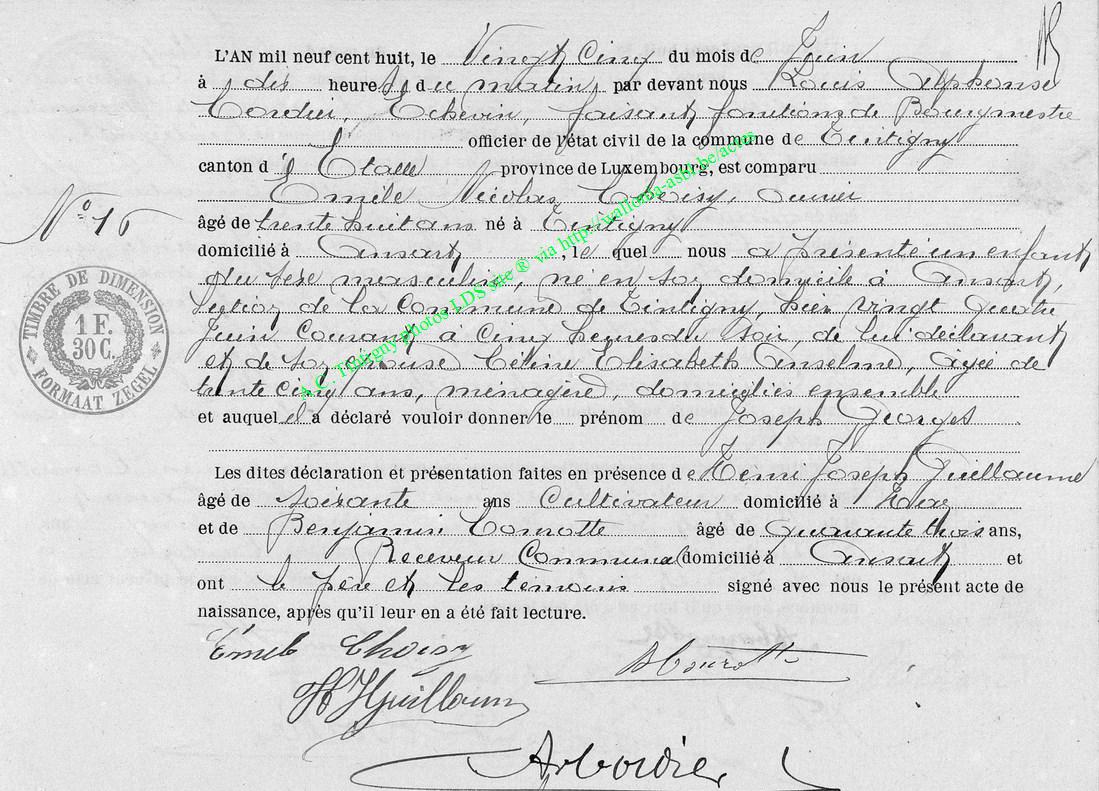 L'AN mil neuf cent huit, le Vingt Cinq du mois de Juin
à dix heures du matin, par devant nous Louis Alphonse
Cordier, Echevin, faisant fonctions de Bourgmestre
officier de l'état civil de la commune de Tintigny
canton d'Etalle, province de Luxembourg, est comparu
Emile Nicolas Choisy, ouvrier
N° 16
âgé de trente huit ans né à Tintigny
domicilié à Ansart, lequel nous a présenté un enfant
du sexe masculin, né en son domicile à Ansart,
section de la Commune de Tintigny, hier vingt quatre
Juin Courant à Cinq heures du soir, de lui déclarant
et de son épouse Céline Elisabeth Anselme, âgée de
trente cinq ans, ménagère, domiciliés ensemble
et auquel il a déclaré vouloir donner le prénom de Joseph Georges
Les dites déclaration et présentation faites en présence de Henri Joseph Guillaume
âgé de soixante ans Cultivateur domicilié à
et de Benjamin âgé de quarante trois ans,
Receveur Communal domicilié à Ansart et
ont le père et les témoins signé avec nous le présent acte de
naissance, après qu'il leur en a été fait lecture.
Emile Choisy
H J Guillaume
TIMBRE DE DIMENSION
1 F.
30 C.
FORMAAT ZEGEL
A.C. Tintigny photos LDS site ® via http://wallonia-asbl.be/actes